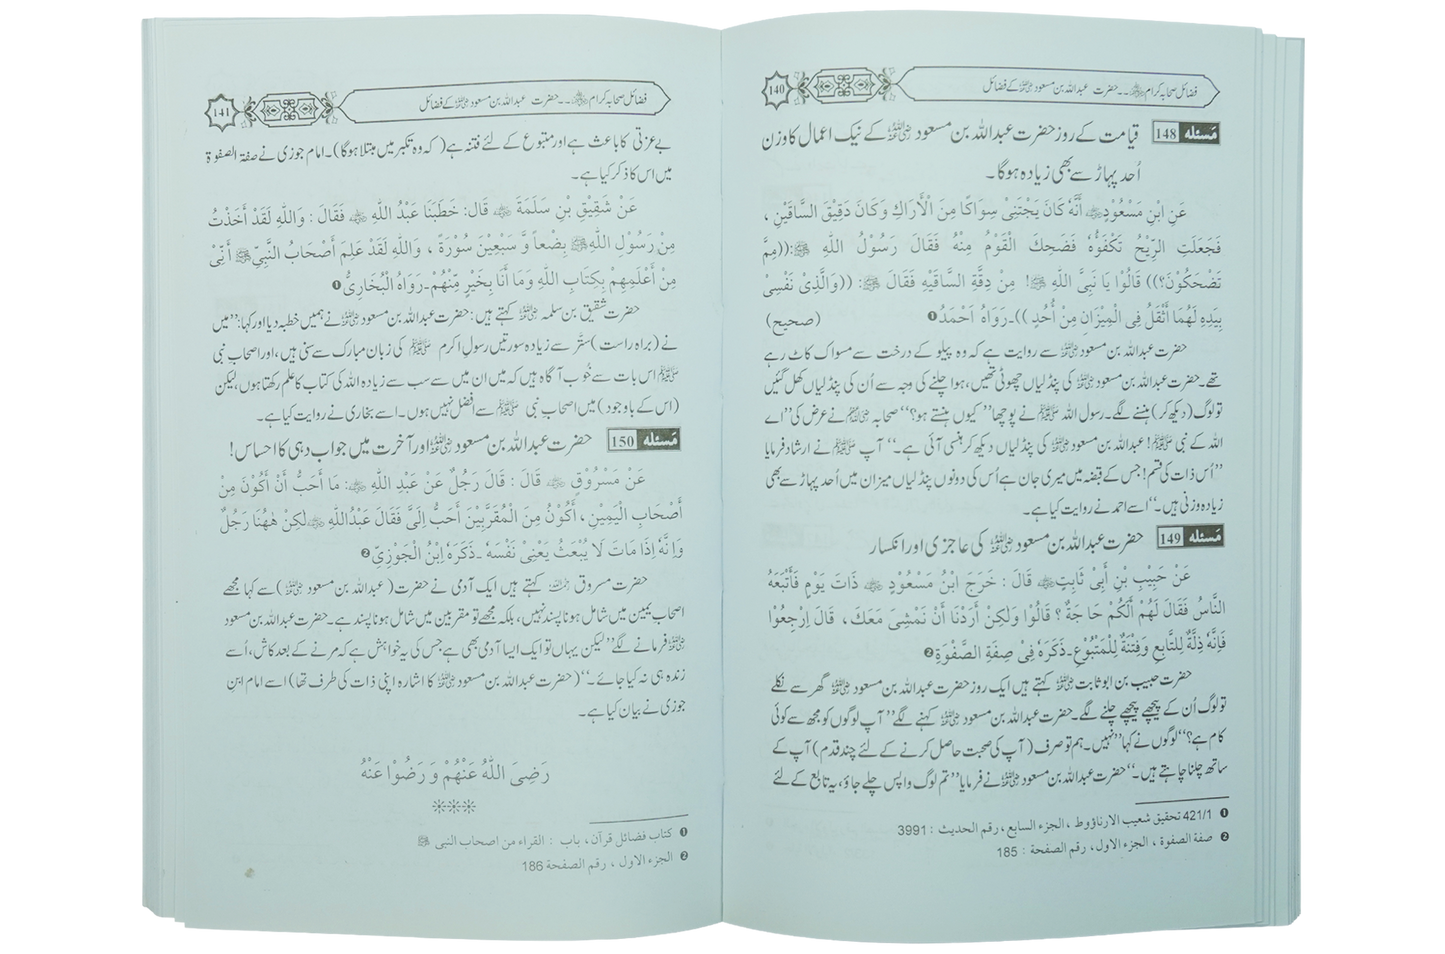 فضائل صحابہ کرام ﷢ ۔۔ حضرت عبداللہ بن مسعود ﷜ کے فضائل
140
مَسئلہ 148 قیامت کے روز حضرت عبداللہ بن مسعود ﷜ کے نیک اعمال کا وزن
اُحد پہاڑ سے بھی زیادہ ہوگا۔
عَنِ ابْنِ مَسْعُوْدٍ ﷜ أَنَّهٗ كَانَ يَجْتَنِىْ سِوَاكًا مِنَ الْأَرَاكِ وَكَانَ دَقِيْقَ السَّاقَيْنِ ،
فَجَعَلَتِ الرِّيْحُ تَكْفَؤُهٗ فَضَحِكَ الْقَوْمُ مِنْهُ فَقَالَ رَسُوْلُ اللهِ ﷺ :((مِمَّ
تَضْحَكُوْنَ؟)) قَالُوْا يَا نَبِىَّ اللهِ ﷺ! مِنْ دِقَّةِ السَّاقَيْهِ فَقَالَ ﷺ : ((وَالَّذِىْ نَفْسِىْ
بِيَدِهٖ لَهُمَا أَثْقَلُ فِى الْمِيْزَانِ مِنْ أُحُدٍ ))۔رَوَاهُ اَحْمَدُ❶ (صحيح)
حضرت عبداللہ بن مسعود ﷜ سے روایت ہے کہ وہ پیلو کے درخت سے مسواک کاٹ رہے
تھے۔ حضرت عبداللہ بن مسعود ﷜ کی پنڈلیاں چھوٹی تھیں، ہوا چلنے کی وجہ سے اُن کی پنڈلیاں کھل گئیں
تو لوگ (دیکھ کر) ہنسنے لگے۔ رسول اللہ ﷺ نے پوچھا ”کیوں ہنستے ہو؟“ صحابہ ﷢ نے عرض کی ”اے
اللہ کے نبی ﷺ! عبداللہ بن مسعود ﷜ کی پنڈلیاں دیکھ کر ہنسی آئی ہے۔“ آپ ﷺ نے ارشاد فرمایا
”اُس ذات کی قسم! جس کے قبضہ میں میری جان ہے اُس کی دونوں پنڈلیاں میزان میں اُحد پہاڑ سے بھی
زیادہ وزنی ہیں۔“ اسے احمد نے روایت کیا ہے۔
مَسئلہ 149 حضرت عبداللہ بن مسعود ﷜ کی عاجزی اور انکسار
عَنْ حَبِيْبِ بْنِ أَبِىْ ثَابِتٍ ﷜ قَالَ : خَرَجَ ابْنُ مَسْعُوْدٍ ﷜ ذَاتَ يَوْمٍ فَأَتْبَعَهُ
النَّاسُ فَقَالَ لَهُمْ أَلَكُمْ حَاجَةٌ ؟ قَالُوْا وَلٰكِنْ أَرَدْنَا أَنْ نَمْشِىَ مَعَكَ ، قَالَ اِرْجِعُوْا
فَإِنَّهٗ ذِلَّةٌ لِلتَّابِعِ وَفِتْنَةٌ لِلْمَتْبُوْعِ۔ذَكَرَهٗ فِىْ صِفَةِ الصَّفْوَةِ❷
حضرت حبیب بن ابو ثابت ﷜ کہتے ہیں ایک روز حضرت عبداللہ بن مسعود ﷜ گھر سے نکلے
تو لوگ اُن کے پیچھے پیچھے چلنے لگے۔ حضرت عبداللہ بن مسعود ﷜ کہنے لگے ”آپ لوگوں کو مجھ سے کوئی
کام ہے؟“ لوگوں نے کہا ”نہیں۔ ہم تو صرف (آپ کی صحبت حاصل کرنے کے لئے چند قدم) آپ کے
ساتھ چلنا چاہتے ہیں۔“ حضرت عبداللہ بن مسعود ﷜ نے فرمایا ”تم لوگ واپس چلے جاؤ، یہ تابع کے لئے
❶ 421/1 تحقيق شعيب الارناؤوط ، الجزء السابع ، رقم الحديث : 3991
❷ صفة الصفوة ، الجزء الاول، رقم الصفحة : 185
فضائل صحابہ کرام ﷢ ۔۔ حضرت عبداللہ بن مسعود ﷜ کے فضائل
141
بے عزتی کا باعث ہے اور متبوع کے لئے فتنہ ہے (کہ وہ تکبر میں مبتلا ہوگا)۔ امام جوزی نے صفۃ الصفوۃ
میں اس کا ذکر کیا ہے۔
عَنْ شَقِيْقِ بْنِ سَلَمَةَ ﷜ قَالَ: خَطَبَنَا عَبْدُ اللهِ ﷜ فَقَالَ : وَاللهِ لَقَدْ أَخَذْتُ
مِنْ رَسُوْلِ اللهِ ﷺ بِضْعاً وَّ سَبْعِيْنَ سُوْرَةً ، وَاللهِ لَقَدْ عَلِمَ أَصْحَابُ النَّبِىِّ ﷺ أَنِّىْ
مِنْ أَعْلَمِهِمْ بِكِتَابِ اللهِ وَمَا أَنَا بِخَيْرٍ مِّنْهُمْ۔رَوَاهُ الْبُخَارِىُّ❶
حضرت شقیق بن سلمہ ﷜ کہتے ہیں: حضرت عبداللہ بن مسعود ﷜ نے ہمیں خطبہ دیا اور کہا: ”میں
نے (براہ راست) ستّر سے زیادہ سورتیں رسولِ اکرم ﷺ کی زبان مبارک سے سنی ہیں، اور اصحاب نبی
ﷺ اس بات سے خُوب آگاہ ہیں کہ میں ان میں سے سب سے زیادہ اللہ کی کتاب کا علم رکھتا ہوں، لیکن
(اس کے باوجود) میں اصحاب نبی ﷺ سے افضل نہیں ہوں۔ اسے بخاری نے روایت کیا ہے۔
مَسئلہ 150 حضرت عبداللہ بن مسعود ﷜ اور آخرت میں جواب دہی کا احساس!
عَنْ مَسْرُوْقٍ ﷜ قَالَ : قَالَ رَجُلٌ عَنْ عَبْدِ اللهِ ﷜: مَا أُحَبُّ أَنْ أَكُوْنَ مِنْ
أَصْحَابِ الْيَمِيْنِ ، أَكُوْنُ مِنَ الْمُقَرَّبِيْنَ أَحَبُّ إِلَىَّ فَقَالَ عَبْدُاللهِ ﷜لٰكِنْ هٰهُنَا رَجُلٌ
وَاِنَّهٗ اِذَا مَاتَ لَا يُبْعَثُ يَعْنِىْ نَفْسَهٗ ۔ذَكَرَهٗ اِبْنُ الْجَوْزِىِّ❷
حضرت مسروق ﷫ کہتے ہیں ایک آدمی نے حضرت (عبداللہ بن مسعود ﷜) سے کہا مجھے
اصحاب یمین میں شامل ہونا پسند نہیں، بلکہ مجھے تو مقربین میں شامل ہونا پسند ہے۔ حضرت عبداللہ بن مسعود
﷜ فرمانے لگے ”لیکن یہاں تو ایک ایسا آدمی بھی ہے جس کی یہ خواہش ہے کہ مرنے کے بعد کاش، اُسے
زندہ ہی نہ کیا جائے۔“ (حضرت عبداللہ بن مسعود ﷜ کا اشارہ اپنی ذات کی طرف تھا) اسے امام ابنِ
جوزی نے بیان کیا ہے۔
رَضِىَ اللهُ عَنْهُمْ وَ رَضُوْا عَنْهُ
❋❋❋
❶ كتاب فضائل قرآن ، باب : القراء من اصحاب النبى ﷺ
❷ الجزء الاول ، رقم الصفحة 186